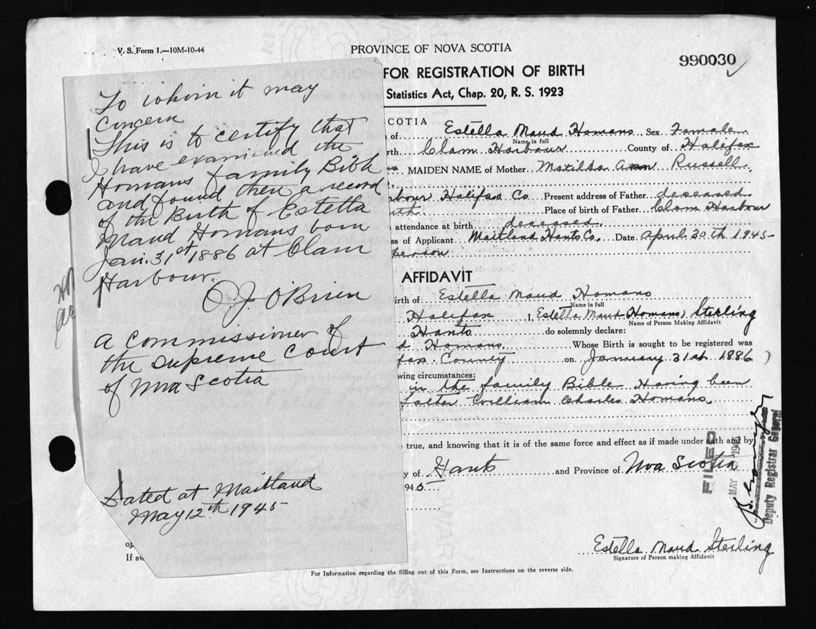 V. S. Form 1.—10M-10-44
PROVINCE OF NOVA SCOTIA
990030
FOR REGISTRATION OF BIRTH
Statistics Act, Chap. 20, R. S. 1923
To whom it may
concern
This is to certify that
I have examined the
Homans family Bible
and found there a record
of the Birth of Estella
Maud Homans born
Jan. 31st 1886 at Clam
Harbour.
O J. O'Brien
a commissioner of
the Supreme Court
of Nova Scotia
Dated at Maitland
May 12th 1945
COTIA
of Estella Maud Homans Sex Female
Name in full
rth Clam Harbour County of Halifax
MAIDEN NAME of Mother Matilda Ann Russell
rbour Halifax Co Present address of Father deceased
Place of birth of Father Clam Harbour
attendance at birth deceased
ss of Applicant Maitland Hants Co. Date April 30th 1945
person
AFFIDAVIT
irth of Estella Maud Homans
Name in full
Halifax I, Estella Maud Homans, Sterling
Name of Person Making Affidavit
Hants do solemnly declare:
d Homans Whose Birth is sought to be registered was
fax County on January 31st 1886
wing circumstances:
in the family Bible Having been
William Charles Homans.
true, and knowing that it is of the same force and effect as if made under oath and by
y of Hants and Province of Nova Scotia
945
FILED
MAY
Deputy Registrar General
Estella Maud Sterling
Signature of Person making Affidavit
If sw
For Information regarding the filling out of this Form, see Instructions on the reverse side.